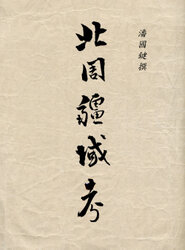 潘國鍵撰
北周疆域考